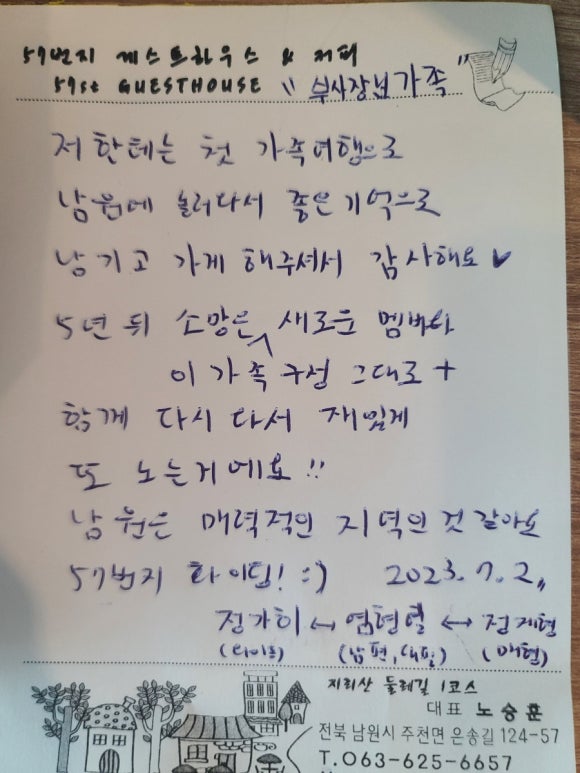 57번지 게스트하우스 & 커피
57st GUESTHOUSE "부사장님가족"
저한테는 첫 가족여행으로
남원에 놀러다서 좋은기억으로
남기고 가게 해주셔서 감사해요♥
5년 뒤 소망은 새로운 멤버와
이 가족 구성 그대로 +
함께 다시 다서 재밌게
또 노는거에요!!
남원은 매력적인 지역인것 같아요
57번지 화이팅! :) 2023. 7. 2,,
정가희 ↔ 염현열 ↔ 정재현
(와이프) (남편, 대빵) (매형)
지리산 둘레길 1코스
대표 노승훈
전북 남원시 주천면 은송길 124-57
T.063-625-6657